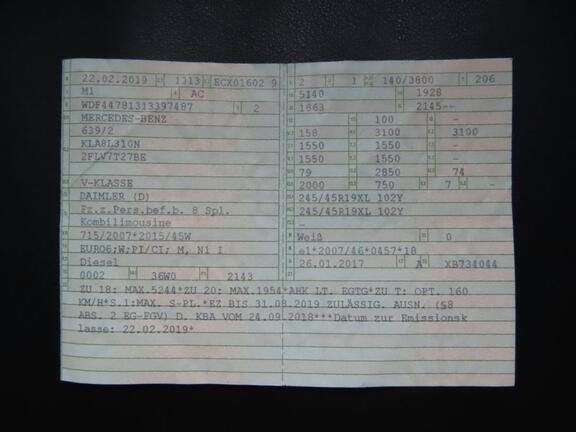 22.02.2019 1313 ECX01602 9
M1 AC
WDF44781313397487 2
MERCEDES-BENZ
639/2
KLA8L310N
2FLV7T27BE
V-KLASSE
DAIMLER (D)
Fz.z.Pers.bef.b. 8 Spl.
Kombilimousine
715/2007*2015/45W
EURO6;W;PI/CI; M, N1 I
Diesel
0002 36W0 2143
2 1 140/3800 206
5140 1928
1863 2145--
100 -
158 3100 3100
1550 1550 -
1550 1550 -
79 2850 74
2000 750 7 -
245/45R19XL 102Y
245/45R19XL 102Y
-
Weiß 0
e1*2007/46*0457*18
26.01.2017 A XB734044
ZU 18: MAX.5244*ZU 20: MAX.1954*AHK LT. EGTG*ZU T: OPT. 160
KM/H*S.1:MAX. S-PL.*EZ BIS 31.08.2019 ZULÄSSIG. AUSN. (§8
ABS. 2 EG-FGV) D. KBA VOM 24.09.2018***Datum zur Emissionsk
lasse: 22.02.2019*